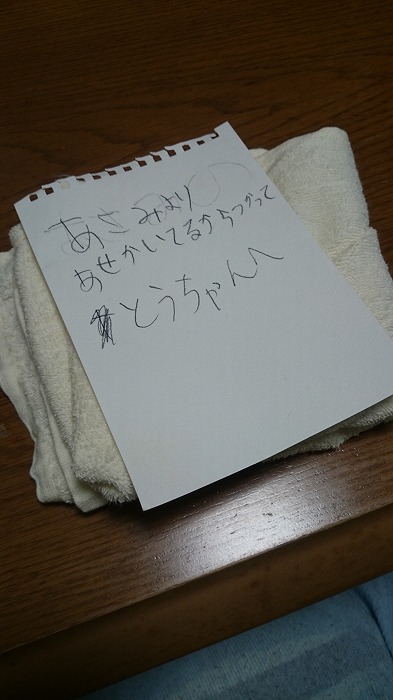 あさみより
あせかいてるからつかって
とうちゃんへ